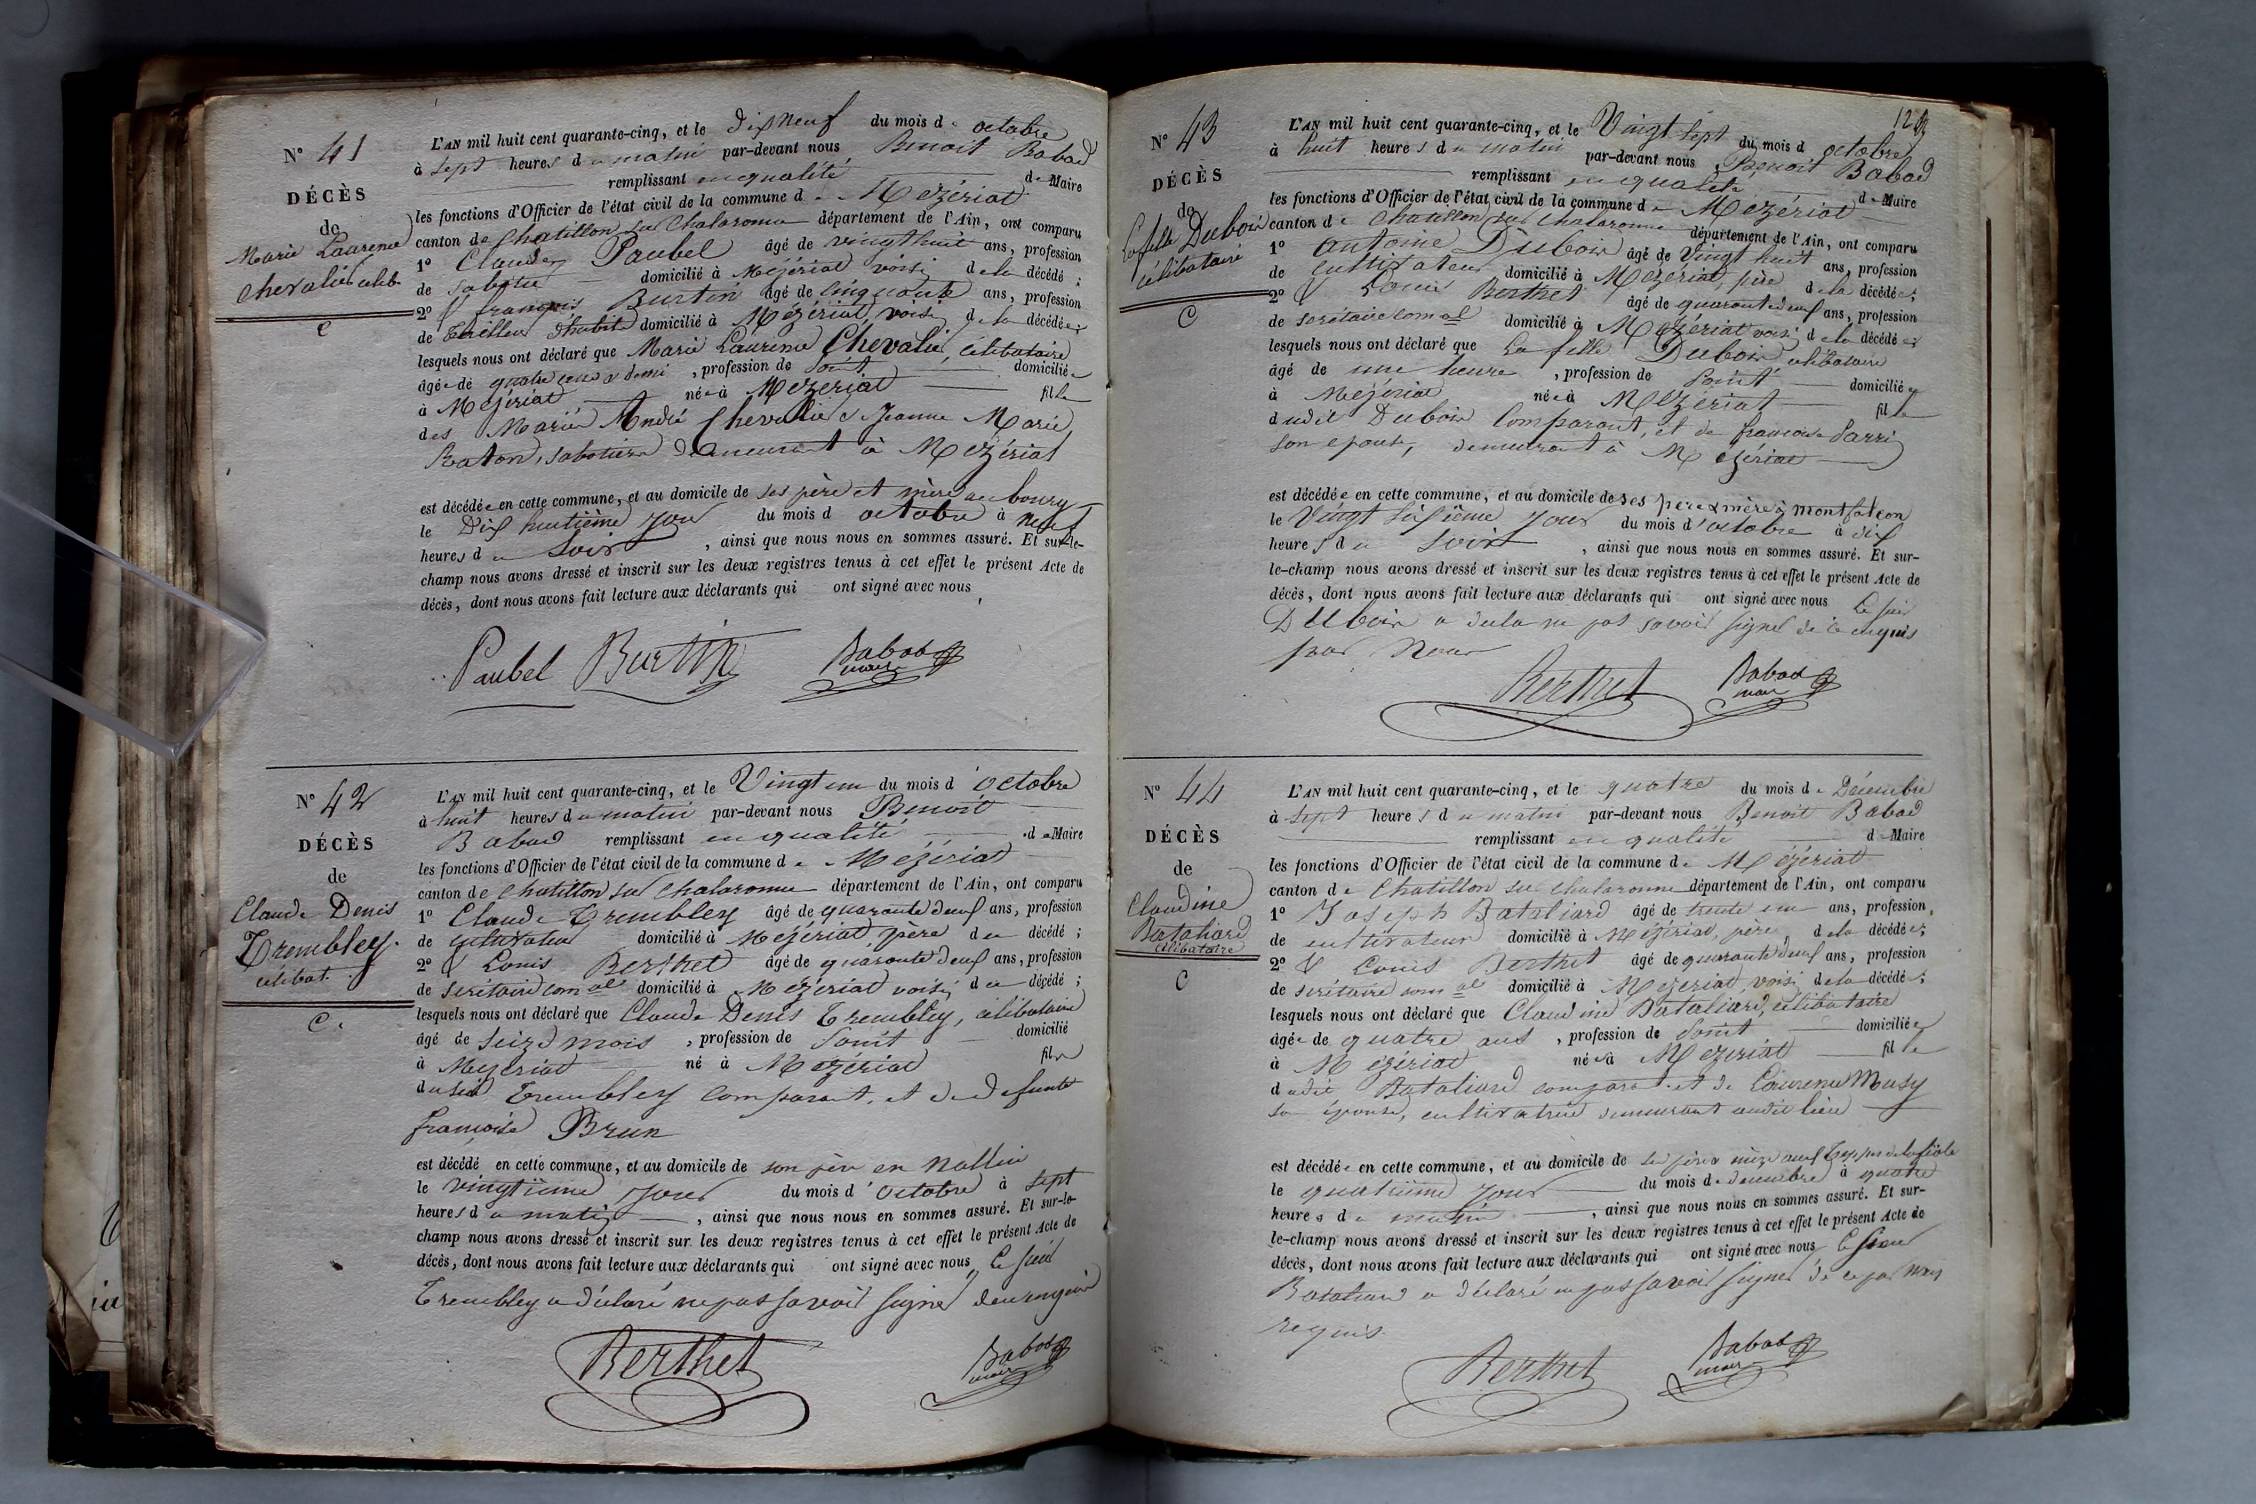 N° 41
DÉCÈS
de
Marie Laurence
Chevalié célib.
C
L'AN mil huit cent quarante-cinq, et le dix neuf du mois de octobre
à sept heures du matin par-devant nous Benoit Babad
remplissant en qualité de Maire
les fonctions d'Officier de l'état civil de la commune de Mezériat
canton de Chatillon sur Chalaronne département de l'Ain, ont comparu
1° Claude Paubel âgé de vingt huit ans, profession
de sabotier domicilié à Mézériat voisin de la décédé ;
2° françois Burtin âgé de cinquante ans, profession
de tailleur d'habits domicilié à Mézériat, voisin de la décédée ;
lesquels nous ont déclaré que Marie Laurence Chevalié, célibataire
âgée de quatre ans et demi, profession de domiciliée
à Mézériat née à Mezériat fille
des Mariés André Chevalié et Jeanne Marie
Raton, sabotiers demeurant à Mezériat
est décédée en cette commune, et au domicile de ses père et mère au bourg
le Dix huitième jour du mois d octobre à neuf
heures du soir, ainsi que nous nous en sommes assuré. Et sur-le-
champ nous avons dressé et inscrit sur les deux registres tenus à cet effet le présent Acte de
décès, dont nous avons fait lecture aux déclarants qui ont signé avec nous
Paubel Burtin Babad
maire
N° 42
DÉCÈS
de
Claude Denis
Trembley.
célibat.
C.
L'AN mil huit cent quarante-cinq, et le Vingt un du mois d'octobre
à huit heures du matin par-devant nous Benoit
Babad remplissant en qualité de Maire
les fonctions d'Officier de l'état civil de la commune de Mézériat
canton de Chatillon sur Chalaronne département de l'Ain, ont comparu
1° Claude Trembley âgé de quarante deux ans, profession
de cultivateur domicilié à Mézériat, père du décédé ;
2° Louis Berthet âgé de quarante neuf ans, profession
de secrétaire comal domicilié à Mézériat voisin du décédé ;
lesquels nous ont déclaré que Claude Denis Trembley, célibataire
âgé de seize mois, profession de domicilié
à Mezériat né à Mezériat fils
dudit Trembley comparant, et de defunte
françoise Brun
est décédé en cette commune, et au domicile de son père en
le vingtième jour du mois d'octobre à sept
heures du matin, ainsi que nous nous en sommes assuré. Et sur-le-
champ nous avons dressé et inscrit sur les deux registres tenus à cet effet le présent Acte de
décès, dont nous avons fait lecture aux déclarants qui ont signé avec nous Le sieur
Trembley a déclaré ne pas savoir signer
Berthet Babad
maire
123
N° 43
DÉCÈS
de
La fille Dubois
célibataire
C
L'AN mil huit cent quarante-cinq, et le Vingt sept du mois d octobre
à huit heures du matin par-devant nous Benoit Babad
remplissant en qualité de Maire
les fonctions d'Officier de l'état civil de la commune de Mezériat
canton de Chatillon sur Chalaronne département de l'Ain, ont comparu
1° Antoine Dubois âgé de Vingt huit ans, profession
de cultivateur domicilié à Mezériat, père de la décédée ;
2° Louis Berthet âgé de quarante neuf ans, profession
de secrétaire comal domicilié à Mezériat voisin de la décédée ;
lesquels nous ont déclaré que La fille Dubois célibataire
âgé de une heure, profession de domiciliée
à Mezériat née à Mezériat fille
dudit Dubois comparant, et de françoise
son epouse, demeurant à Mezériat
est décédée en cette commune, et au domicile de ses père & mère à montfalcon
le Vingt sixième jour du mois d'octobre à dix
heures du soir, ainsi que nous nous en sommes assuré. Et sur-
le-champ nous avons dressé et inscrit sur les deux registres tenus à cet effet le présent Acte de
décès, dont nous avons fait lecture aux déclarants qui ont signé avec nous Le sieur
Dubois a ne pas savoir signer de ce requis
par Nous
Berthet Babad
maire
N° 44
DÉCÈS
de
Claudine
Bataliard
célibataire
C
L'AN mil huit cent quarante-cinq, et le quatre du mois de Décembre
à sept heures du matin par-devant nous Benoit Babad
remplissant en qualité de Maire
les fonctions d'Officier de l'état civil de la commune de Mézériat
canton de Chatillon sur Chalaronne département de l'Ain, ont comparu
1° Joseph Bataliard âgé de trente un ans, profession
de cultivateur domicilié à Mézériat, père de la décédée ;
2° Louis Berthet âgé de quarante neuf ans, profession
de secrétaire comal domicilié à Mezériat, voisin de la décédé ;
lesquels nous ont déclaré que Claudine Bataliard, célibataire
âgée de quatre ans, profession de domiciliée
à Mézériat née à Mezériat fille
dudit Bataliard comparant et de Laurence Musy
son épouse, cultivatrice demeurant audit lieu
est décédée en cette commune, et au domicile de ses père & mère
le quatrième jour du mois de decembre à quatre
heures du matin, ainsi que nous nous en sommes assuré. Et sur-
le-champ nous avons dressé et inscrit sur les deux registres tenus à cet effet le présent Acte de
décès, dont nous avons fait lecture aux déclarants qui ont signé avec nous Le sieur
Bataliard a déclaré ne pas savoir signer de ce par nous
requis.
Berthet Babad
maire